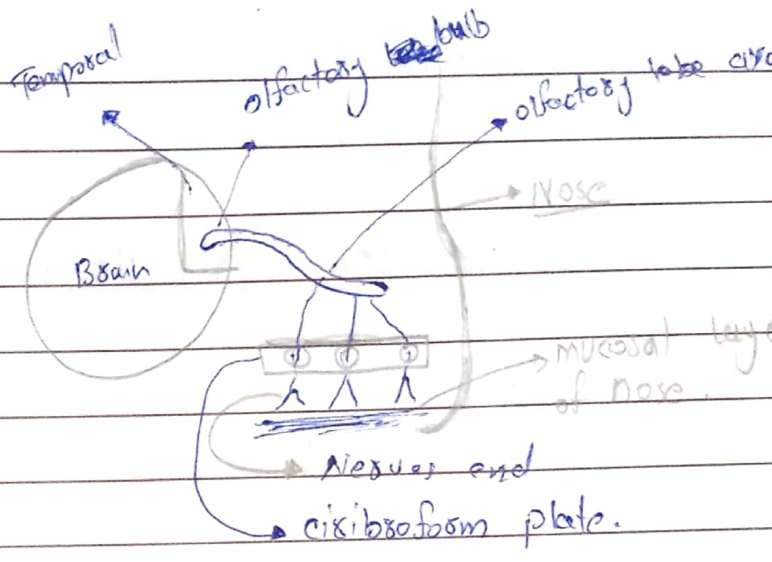 Temporal
olfactory bulb
olfactory lobe
Nose
Brain
mucosal laye
of nose.
Nerves end
ciribroform plate.